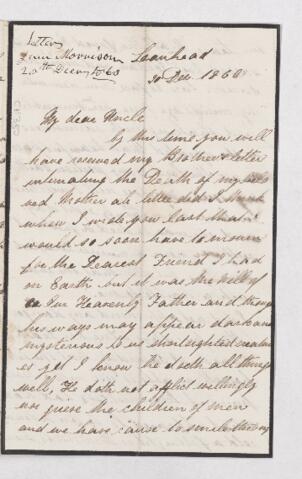 Letter
Morrison
20th Decr 1860
Loanhead
20 Dec 1860
My dear Uncle
by this time you will
have received my Brothers letter
intimating the Death of my belo
ved Mother ah little did I think
when I wrote you last that I
would so soon have to mourn
for the Dearest Friend I had
on Earth but it was the will of
Our Heavenly Father and though
his ways may appear dark and
mysterious to us shortsighted creatures
yet I know he doeth all things
well, He doth not afflict willingly
nor grieve the children of men
and we have cause to smile through